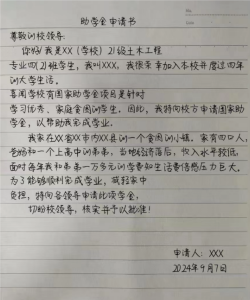 助学金申请书
尊敬的校领导
你好!我是XX(学校)21级土木工程
专业四(2)班学生,我叫XXX,我很荣幸加入本校并度过四年
的大学生活。
喜闻学校有国家助学金项目是针对
学习优秀、家庭贫困的学生。因此,我特向校方申请国家助
学金,以帮助我完成学业。
我家在XX省XX市内XX县的一个贫困小镇。家有四口人,
爸妈和一个上高中的弟弟,当地经济落后,收入水平较低,
面对每年我和弟弟一万多元的学费和生活费倍感压力巨大。
为了能够顺利完成学业,减轻家中
负担,特向各领导申请此项学金,
切盼校领导,核实并予以批准!
申请人:XXX
2024年9月7日